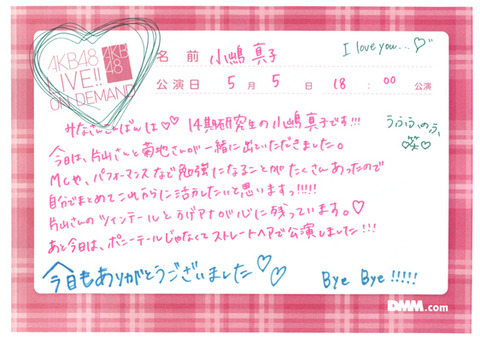 AKB48
LIVE!!
ON DEMAND
AKB
48
名前 小嶋真子
I love you...♡
公演日 5月5日 18:00 公演
みなさんこんばんは♡♡ 14期研究生の小嶋真子です!!!
うふふ、のふ、
笑♡
今日は、片山さんと菊地さんが一緒に出ていただきました。
MCや、パフォーマンスなど勉強になることがたくさんあったので
自分でまとめてこれからに活かしたいと思いますっ!!!!!
片山さんのツインテールと
が心に残っています。♡
あと今日は、ポニーテールじゃなくてストレートヘアで公演しました!!!
今日もありがとうございました♡♡
Bye Bye!!!!!
DMM.com